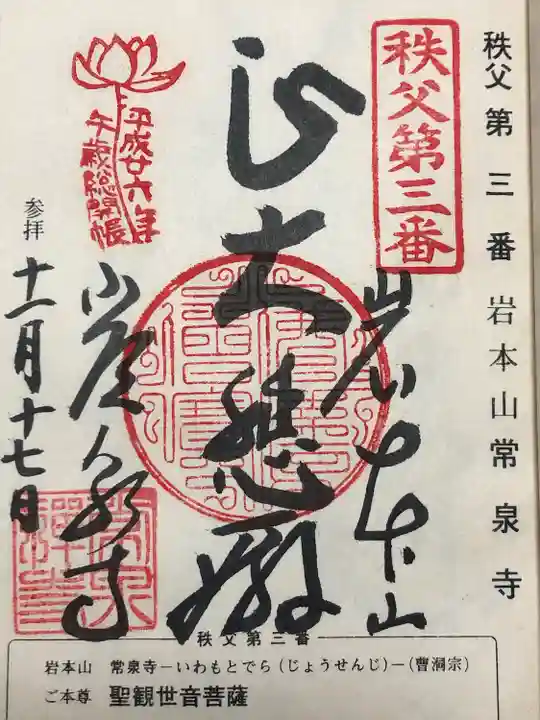 秩父第三番 岩本山常泉寺
秩父第三番
岩本山
大悲殿
常泉寺
平成廿六年
午歳総開帳
参拝 十一月十七日
秩父第三番
岩本山 常泉寺ーいわもとでら(じょうせんじ)ー(曹洞宗)
ご本尊 聖観世音菩薩